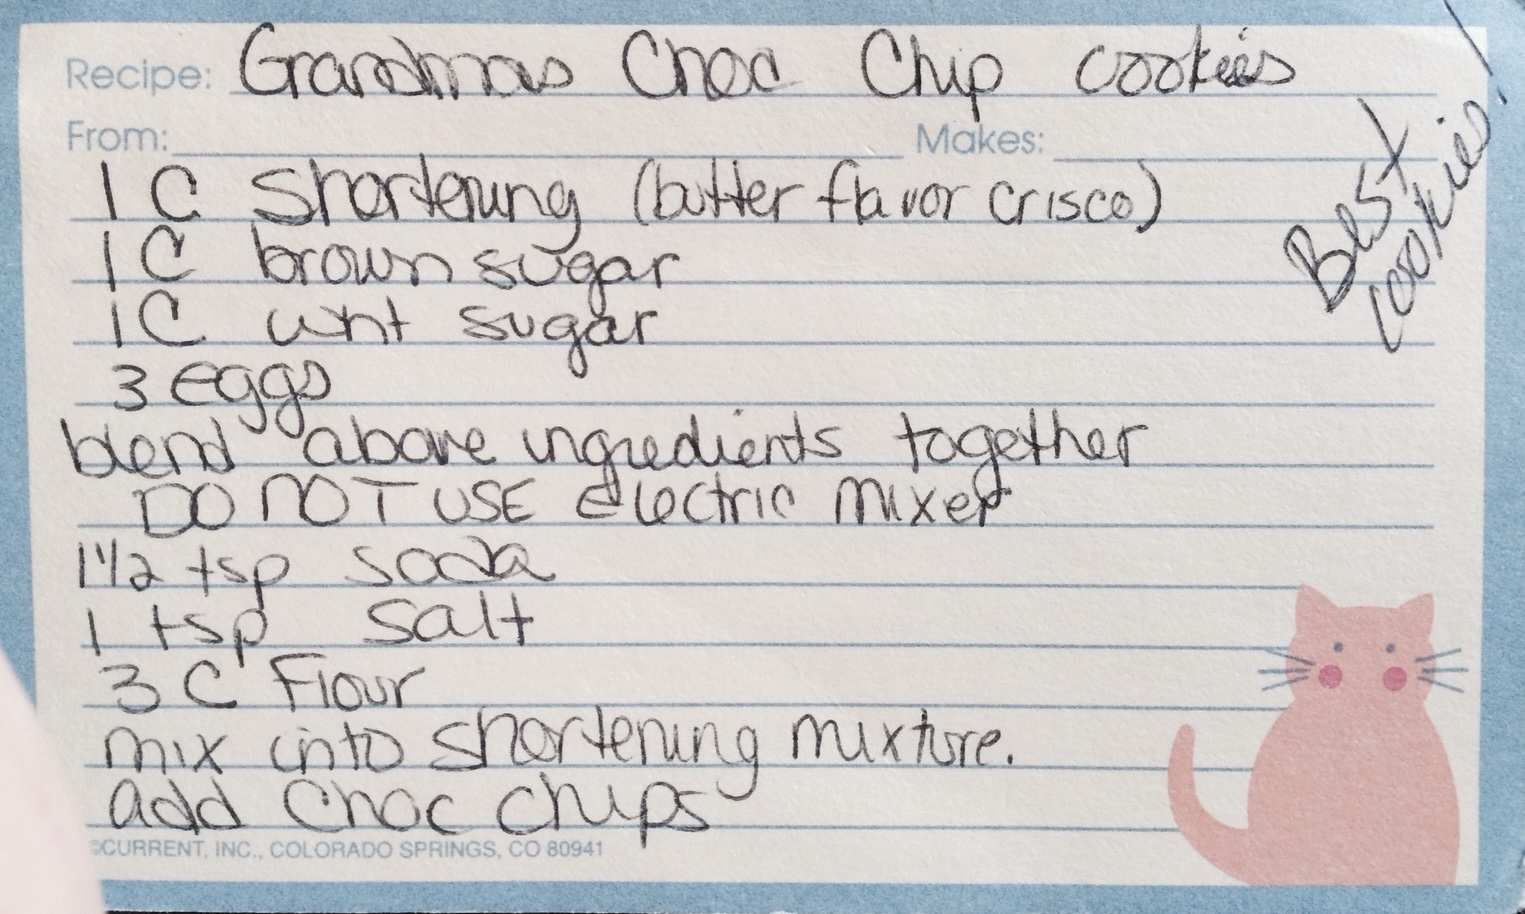 Recipe: Grandmas Choc Chip cookies
From: Makes:
Best
cookies!
1 C shortening (butter flavor crisco)
1 C brown sugar
1 C wht sugar
3 eggs
blend above ingredients together
DO NOT USE Electric mixer
1 1/2 tsp soda
1 tsp salt
3 C Flour
mix into shortening mixture.
add choc chips
©CURRENT, INC., COLORADO SPRINGS, CO 80941